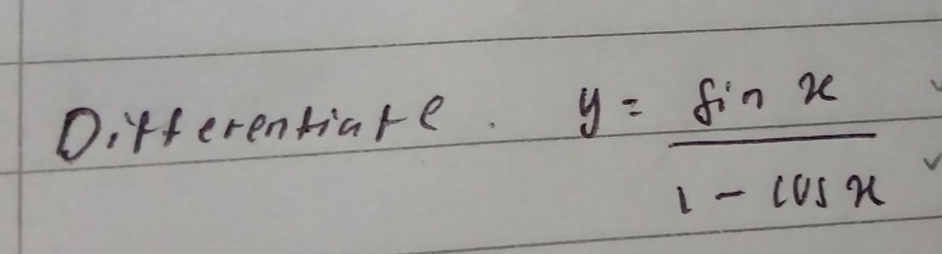 Differentiate. y = sin x
1 - cos x